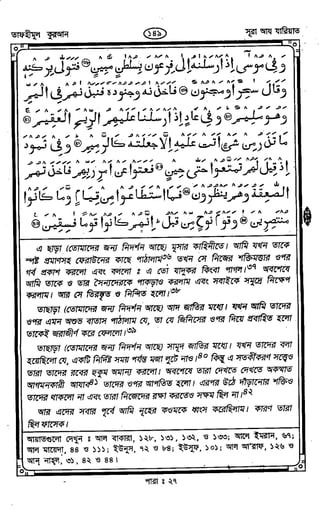 তাফহীমুল কুরআন ১৪৯ সূরা আয যারিয়াত
وَفِي مُوسَى إِذْ أَرْسَلْنَهُ إِلَى فِرْعَوْنَ بِسُلْطَنٍ مُّبِينٍ ۝ فَتَوَلَّى بِرُكْنِهِ
وَقَالَ سٰحِرٌ أَوْ مَجْنُونٌ ۝ فَأَخَذْنٰهُ وَجُنُودَهُ فَنَبَذْنٰهُمْ فِي الْيَمِّ
وَهُوَ مُلِيمٌ ۝ وَفِي عَادٍ إِذْ أَرْسَلْنَا عَلَيْهِمُ الرِّيحَ الْعَقِيمَ ۝
مَا تَذَرُ مِنْ شَيْءٍ أَتَتْ عَلَيْهِ إِلَّا جَعَلَتْهُ كَالرَّمِيمِ ۝ وَفِي ثَمُودَ
إِذْ قِيلَ لَهُمْ تَمَتَّعُوا حَتَّى حِينٍ ۝ فَعَتَوْا عَنْ أَمْرِ رَبِّهِمْ فَأَخَذَتْهُمُ
الصّٰعِقَةُ وَهُمْ يَنْظُرُونَ ۝ فَمَا اسْتَطَاعُوا مِنْ قِيَامٍ وَّمَا كَانُوا
مُنْتَصِرِينَ ۝ وَقَوْمَ نُوحٍ مِّنْ قَبْلُ إِنَّهُمْ كَانُوا قَوْمًا فٰسِقِينَ ۝
এ ছাড়া (তোমাদের জন্য নিদর্শন আছে) মূসার কাহিনীতে। আমি যখন তাকে
স্পষ্ট প্রমাণসহ ফেরাউনের কাছে পাঠালাম তখন সে নিজের শক্তিমত্তার ওপর
গর্ব প্রকাশ করলো এবং বললো : এ তো যাদুকর কিংবা পাগল।৩৭ অবশেষে
আমি তাকে ও তার সৈন্যদেরকে পাকড়াও করলাম এবং সবাইকে সমুদ্রে নিক্ষেপ
করলাম। আর সে তিরস্কৃত ও নিন্দিত হলো।৩৮
তাছাড়া (তোমাদের জন্য নিদর্শন আছে) আদ জাতির মধ্যে। যখন আমি তাদের
ওপর এমন অশুভ বাতাস পাঠালাম যে, তা যে জিনিসের ওপর দিয়ে প্রবাহিত হলো
তাকেই জরাজীর্ণ করে ফেললো।৩৯
তাছাড়া (তোমাদের জন্য নিদর্শন আছে) সামূদ জাতির মধ্যে। যখন তাদের বলা
হয়েছিলো যে, একটি নির্দিষ্ট সময় পর্যন্ত মজা লুটে নাও।৪০ কিন্তু এ সতর্কীকরণ সত্ত্বেও
তারা তাদের রবের হুকুম অমান্য করলো। অবশেষে তারা দেখতে দেখতে অকস্মাত
আগমনকারী আযাব৪১ তাদের ওপর আপতিত হলো। এরপর উঠে দাঁড়ানোর শক্তিও
তাদের থাকলো না এবং তারা নিজেদের রক্ষা করতেও সক্ষম ছিল না।৪২
আর এদের সবার পূর্বে আমি নূহের কওমকে ধ্বংস করেছিলাম। কারণ তারা
ছিল ফাসেক।
আয়াতগুলো দেখুন : আল বাকারা, ১২৮, ১৩১, ১৩২, ও ১৩৩; আলে ইমরান, ৬৭;
আল মায়েদা, ৪৪ ও ১১১; ইউনুস, ৭২ ও ৮৪; ইউসুফ, ১০১; আল আ'রাফ, ১২৬ ও
আন নামল, ৩১, ৪২ ও ৪৪।
পারা : ২৭